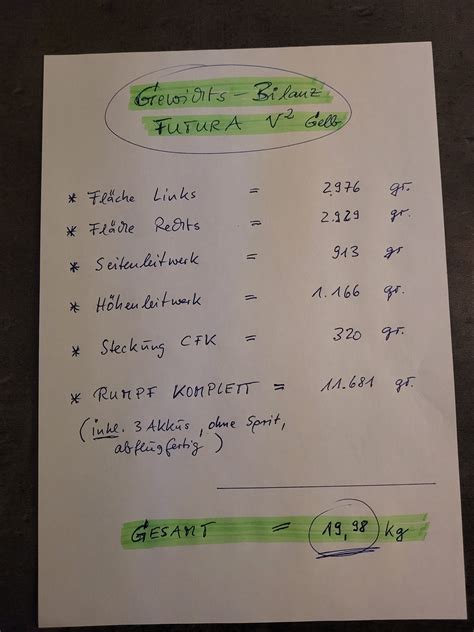 Gewichts-Bilanz
FUTURA V² Gelb
* Fläche Links = 2.976 gr.
* Fläche Rechts = 2.929 gr.
* Seitenleitwerk = 913 gr.
* Höhenleitwerk = 1.166 gr.
* Steckung CFK = 320 gr.
* RUMPF KOMPLETT = 11.681 gr.
(inkl. 3 Akkus, ohne Sprit,
abflugfertig)
GESAMT = 19,98 kg